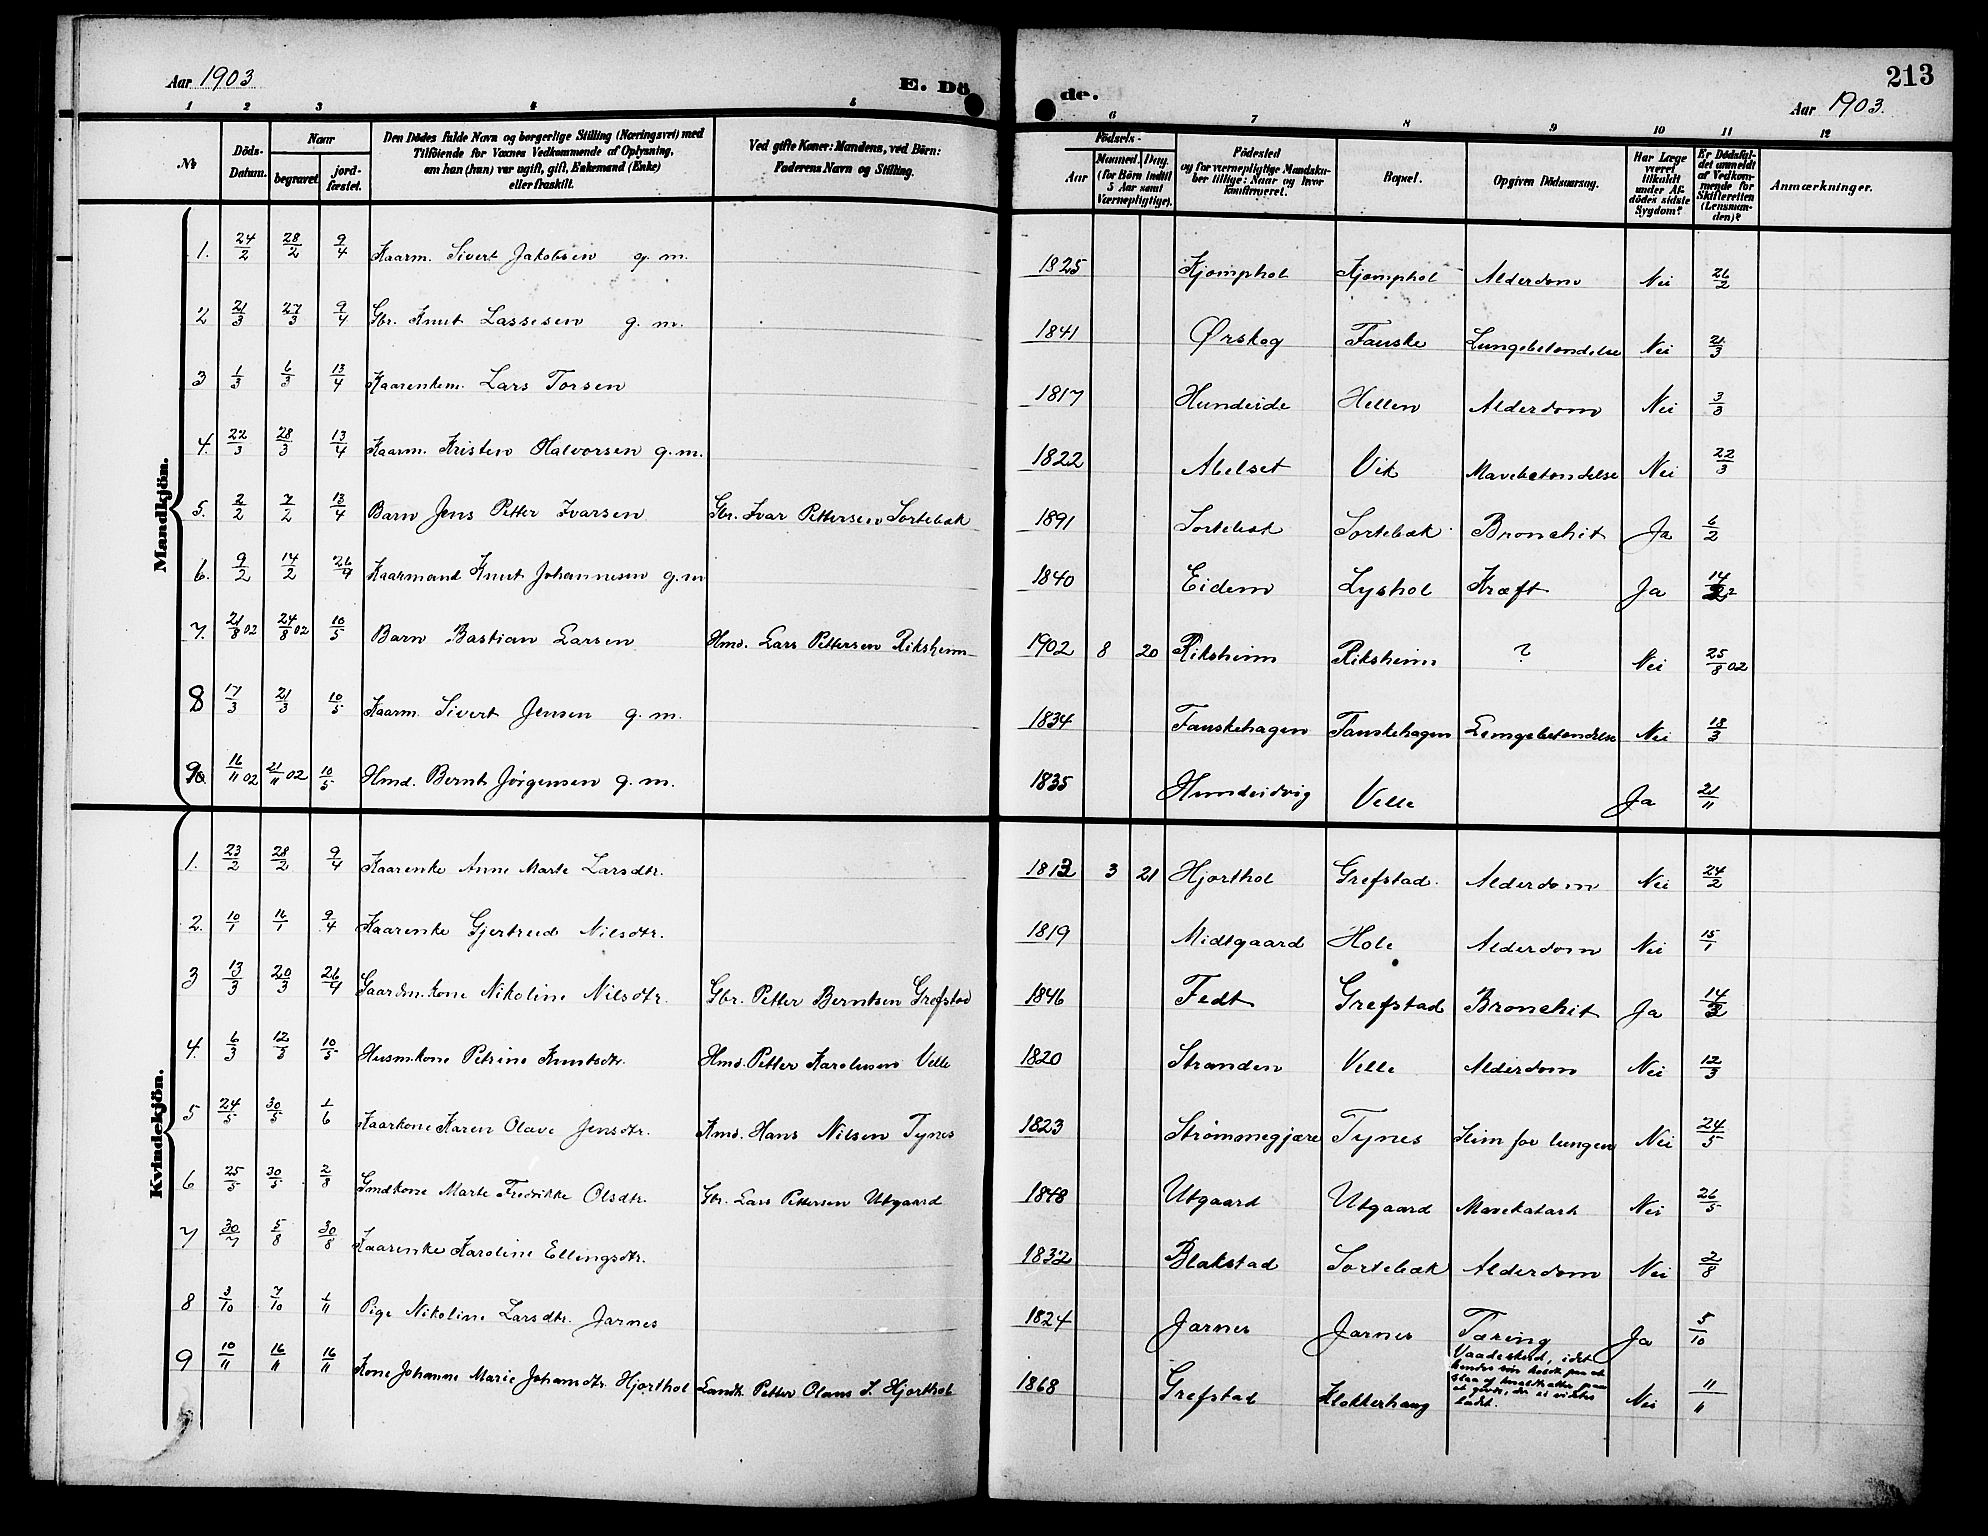 213
Aar 1903
E. Dö de.
Aar 1903.
1 2 3 4 5 6 7 8 9 10 11 12
№
Döds-Datum.
Naar
begravet.
jord-fæstet.
Den Dödes fulde Navn og borgerlige Stilling (Næringsvei) med
Tilföiende for Voxnes Vedkommende af Oplysning,
om han (hun) var ugift, gift, Enkemand (Enke)
eller fraskilt.
Ved gifte Koner: Mandens, ved Börn:
Faderens Navn og Stilling.
Födsels-
Aar
Maaned. Dag.
(for Börn indtil
5 Aar samt
Værnepligtige).
Födested
og for værnepligtige Mandska-
ber tillige: Naar og hvor
konfirmeret.
Bopæl.
Opgiven Dödsaarsag.
Har Læge
været
tilkaldt
under Af-
dödes sidste
Sygdom?
Er Dödsfal-
det anmeldt
af Vedkom-
mende for
Skifteretten
(Lensman-
den)?
Anmærkninger.
Mandkjön.
1. 24/2 28/2 9/4 Kaarm. Sivert Jakobsen g. m. 1825 Kjømphol Kjømphol Alderdom Nei 26/2
2 21/3 27/3 9/4 Gbr. Knut Lassesen g. m. 1841 Ørskog Fauske Lungebetændelse Nei 21/3
3 1/3 6/3 13/4 Kaarenkem. Lars Torsen 1817 Hundeide Hellen Alderdom Nei 3/3
4. 22/3 28/3 13/4 Kaarm. Kristen Halvorsen g. m. 1822 Abelset Vik Mavebetændelse Nei 22/3
5. 2/2 7/2 13/4 Barn Jens Petter Ivarsen Gbr. Ivar Pettersen Sortebæk 1891 Sortebæk Sortebæk Bronchit Ja 6/2
6. 9/2 14/2 26/4 Kaarmand Knut Johannesen g. m 1840 Eidem Lyshol Kræft Ja 14/2
7. 21/8 02 24/8 02 10/5 Barn Bastian Larsen Hmd. Lars Pettersen Riksheim 1902 8 20 Riksheim Riksheim ? Nei 25/8 02
8 17/3 21/3 10/5 Kaarm. Sivert Jensen g. m. 1834 Fauskehagen Fauskehagen Lungebetændelse Nei 18/3
9. 16/11 02 21/11 02 10/5 Hmd. Bernt Jørgensen g. m. 1835 Hundeidvig Velle Ja 21/11
Kvindekjön.
1. 23/2 28/2 9/4 Kaarenke Anne Marte Larsdtr. 1813 3 21 Hjorthol Grefstad. Alderdom Nei 24/2
2. 10/1 16/1 9/4 Kaarenke Gjertrud Nilsdtr. 1819 Midtgaard Hole Alderdom Nei 15/1
3 13/3 20/3 26/4 Gaardm.kone Nikoline Nilsdtr. Gbr. Petter Berntsen Grefstad 1846 Fedt Grefstad Bronchit Ja 14/3
4. 6/3 12/3 10/5 Husm.kone Petrine Knutsdtr. Hmd. Petter Karolusen Velle 1820 Stranden Velle Alderdom Nei 12/3
5 24/5 30/5 1/6 Kaarkone Karen Olave Jensdtr. Kmd. Hans Nilsen Tynes 1823 Strømmegjære Tynes Slim for lungen Nei 24/5
6 25/5 30/5 2/8 Gmdkone Marte Fredrikke Olsdtr. Gbr. Lars Pettersen Utgaard 1848 Utgaard Utgaard Mavekatarh Nei 26/5
7 30/7 5/8 30/8 Kaarenke Karoline Ellingsdtr. 1832 Blakstad Sortebæk Alderdom Nei 2/8
8 3/10 7/10 1/11 Pige Nikoline Larsdtr. Jarnes 1824 Jarnes Jarnes Tæring Ja 5/10
9 10/11 16/11 16/11 Kone Johanne Marie Johansdtr. Hjorthol Landh. Petter Olaus J. Hjorthol 1868 Grefstad Klokkerhaug Vaadeskud, idet hendes søn holdt paa at Nei 11/11